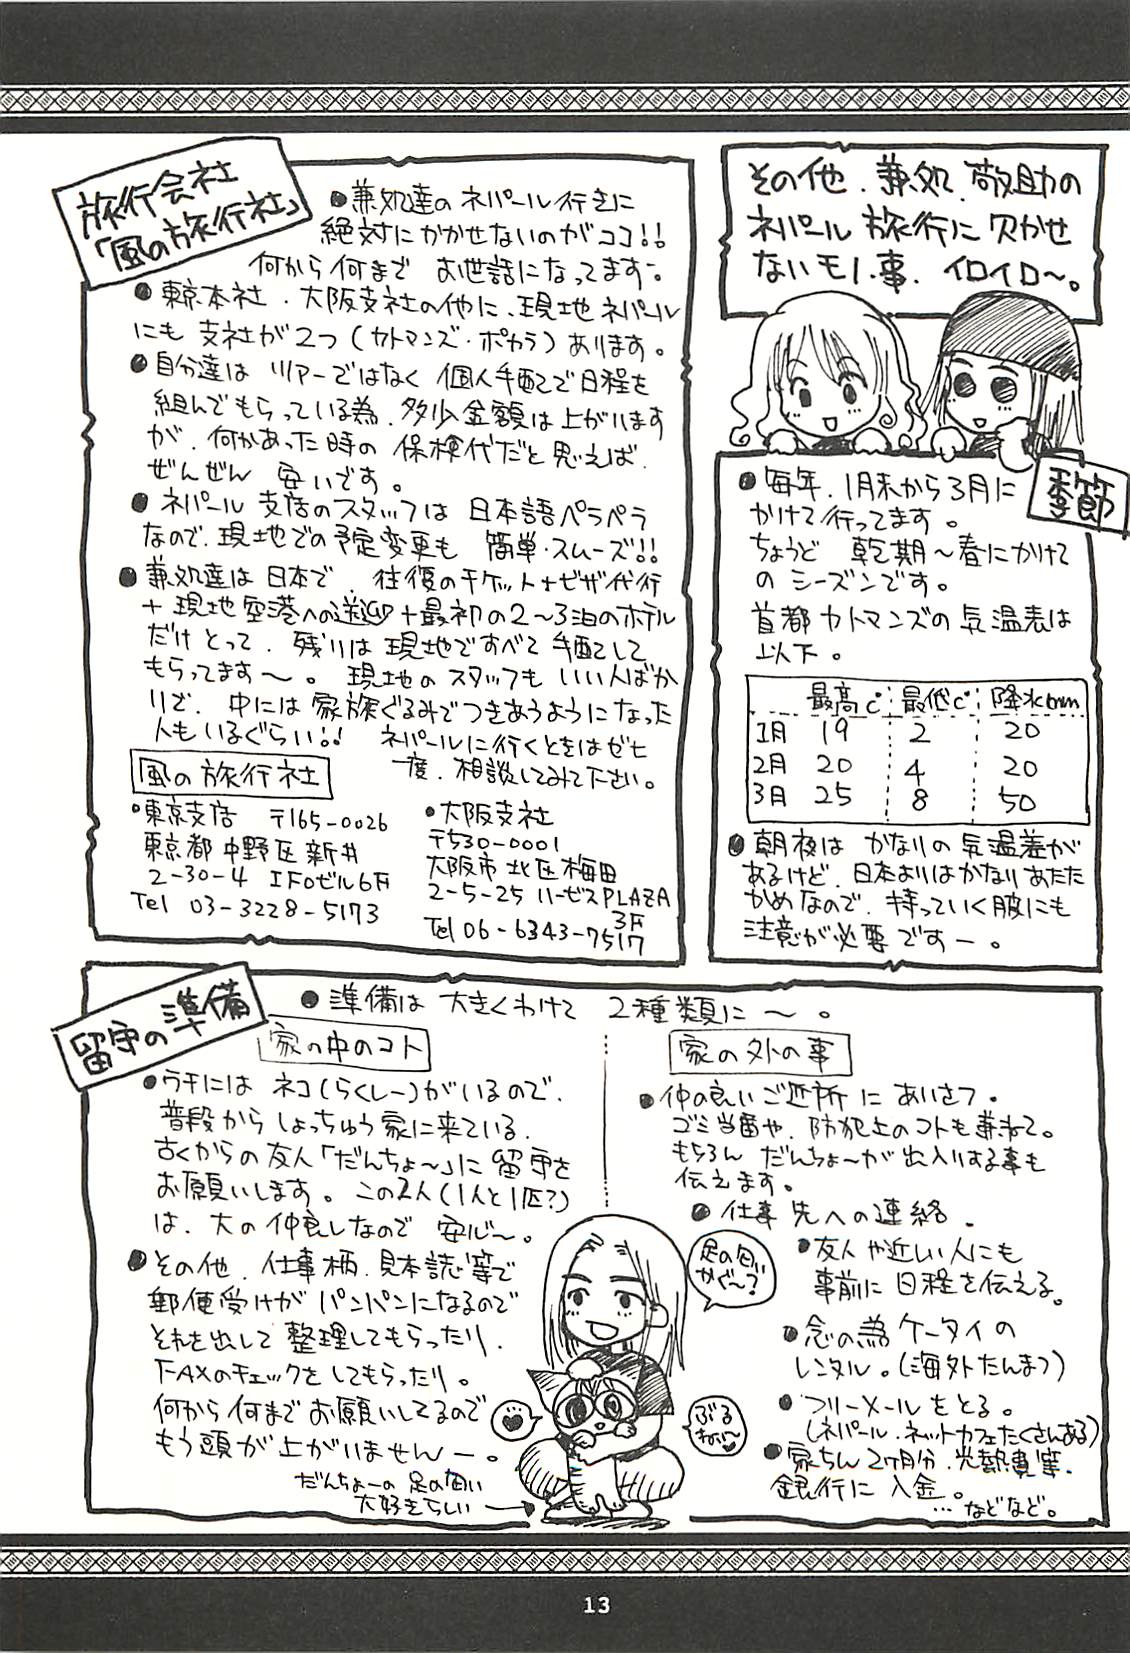 その他、兼処、敬助の
ネパール旅行に欠かせ
ないモノ、事、イロイロ〜。
旅行会社
「風の旅行社」
●兼処達のネパール行きに
絶対にかかせないのがココ!!
何から何まで お世話になってます。
●東京本社・大阪支社の他に、現地ネパール
にも支社が2つ(カトマンズ・ポカラ)あります。
●自分達は ツアーではなく 個人手配で日程を
組んでもらっている為、多少金額は上がります
が、何かあった時の 保検代だと思えば、
ぜんぜん 安いです。
●ネパール支店のスタッフは 日本語ペラペラ
なので、現地での予定変更も 簡単・スムーズ!!
●兼処達は 日本で、往復のチケット+ビザ代行
+現地空港への送迎+最初の2〜3泊のホテル
だけとって、残りは現地ですべて手配して
もらってます〜。現地のスタッフも いい人ばか
りで、中には家族ぐるみでつきあうようになった
人もいるぐらい!! ネパールに行くときはゼヒ
一度、相談してみて下さい。
風の旅行社
・東京支店 〒165-0026
東京都中野区新井
2-30-4 IFOビル6F
Tel 03-3228-5173
・大阪支社
〒530-0001
大阪市北区梅田
2-5-25 ハービスPLAZA
3F
Tel 06-6343-7517
季節
●毎年、1月末から3月に
かけて行ってます。
ちょうど 乾期〜春にかけて
のシーズンです。
首都カトマンズの気温表は
以下。
最高℃ 最低℃ 降水mm
1月 19 2 20
2月 20 4 20
3月 25 8 50
●朝夜は かなりの気温差が
あるけど、日本よりはかなりあたた
かめなので、持っていく服にも
注意が必要ですー。
留守の準備
●準備は 大きくわけて 2種類に〜。
家の中のコト
●ウチには ネコ(らくしー)がいるので、
普段からしょっちゅう家に来ている、
古くからの友人「だんちょ〜」に留守を
お願いします。この2人(1人と1匹?)
は、大の仲良しなので 安心〜。
●その他、仕事柄、見本誌等で
郵便受けが パンパンになるので
それを出して整理してもらったり、
FAXのチェックをしてもらったり。
何から何までお願いしてるので
もう頭が上がいませんー。
だんちょーの足の匂い
大好きらしい
足の匂い
かぐ〜?
ぶる
ねい〜
家の外の事
●仲の良いご近所にあいさつ。
ゴミ当番や、防犯上のコトも兼ねて。
もちろん だんちょ〜が出入りする事も
伝えます。
●仕事先への連絡。
●友人や近しい人にも
事前に日程を伝える。
●念の為ケータイの
レンタル。(海外たんまつ)
●フリーメールをとる。
(ネパール、ネットカフェたくさんある)
●家ちん2ヶ月分、光熱費等、
銀行に入金。
…などなど。
13